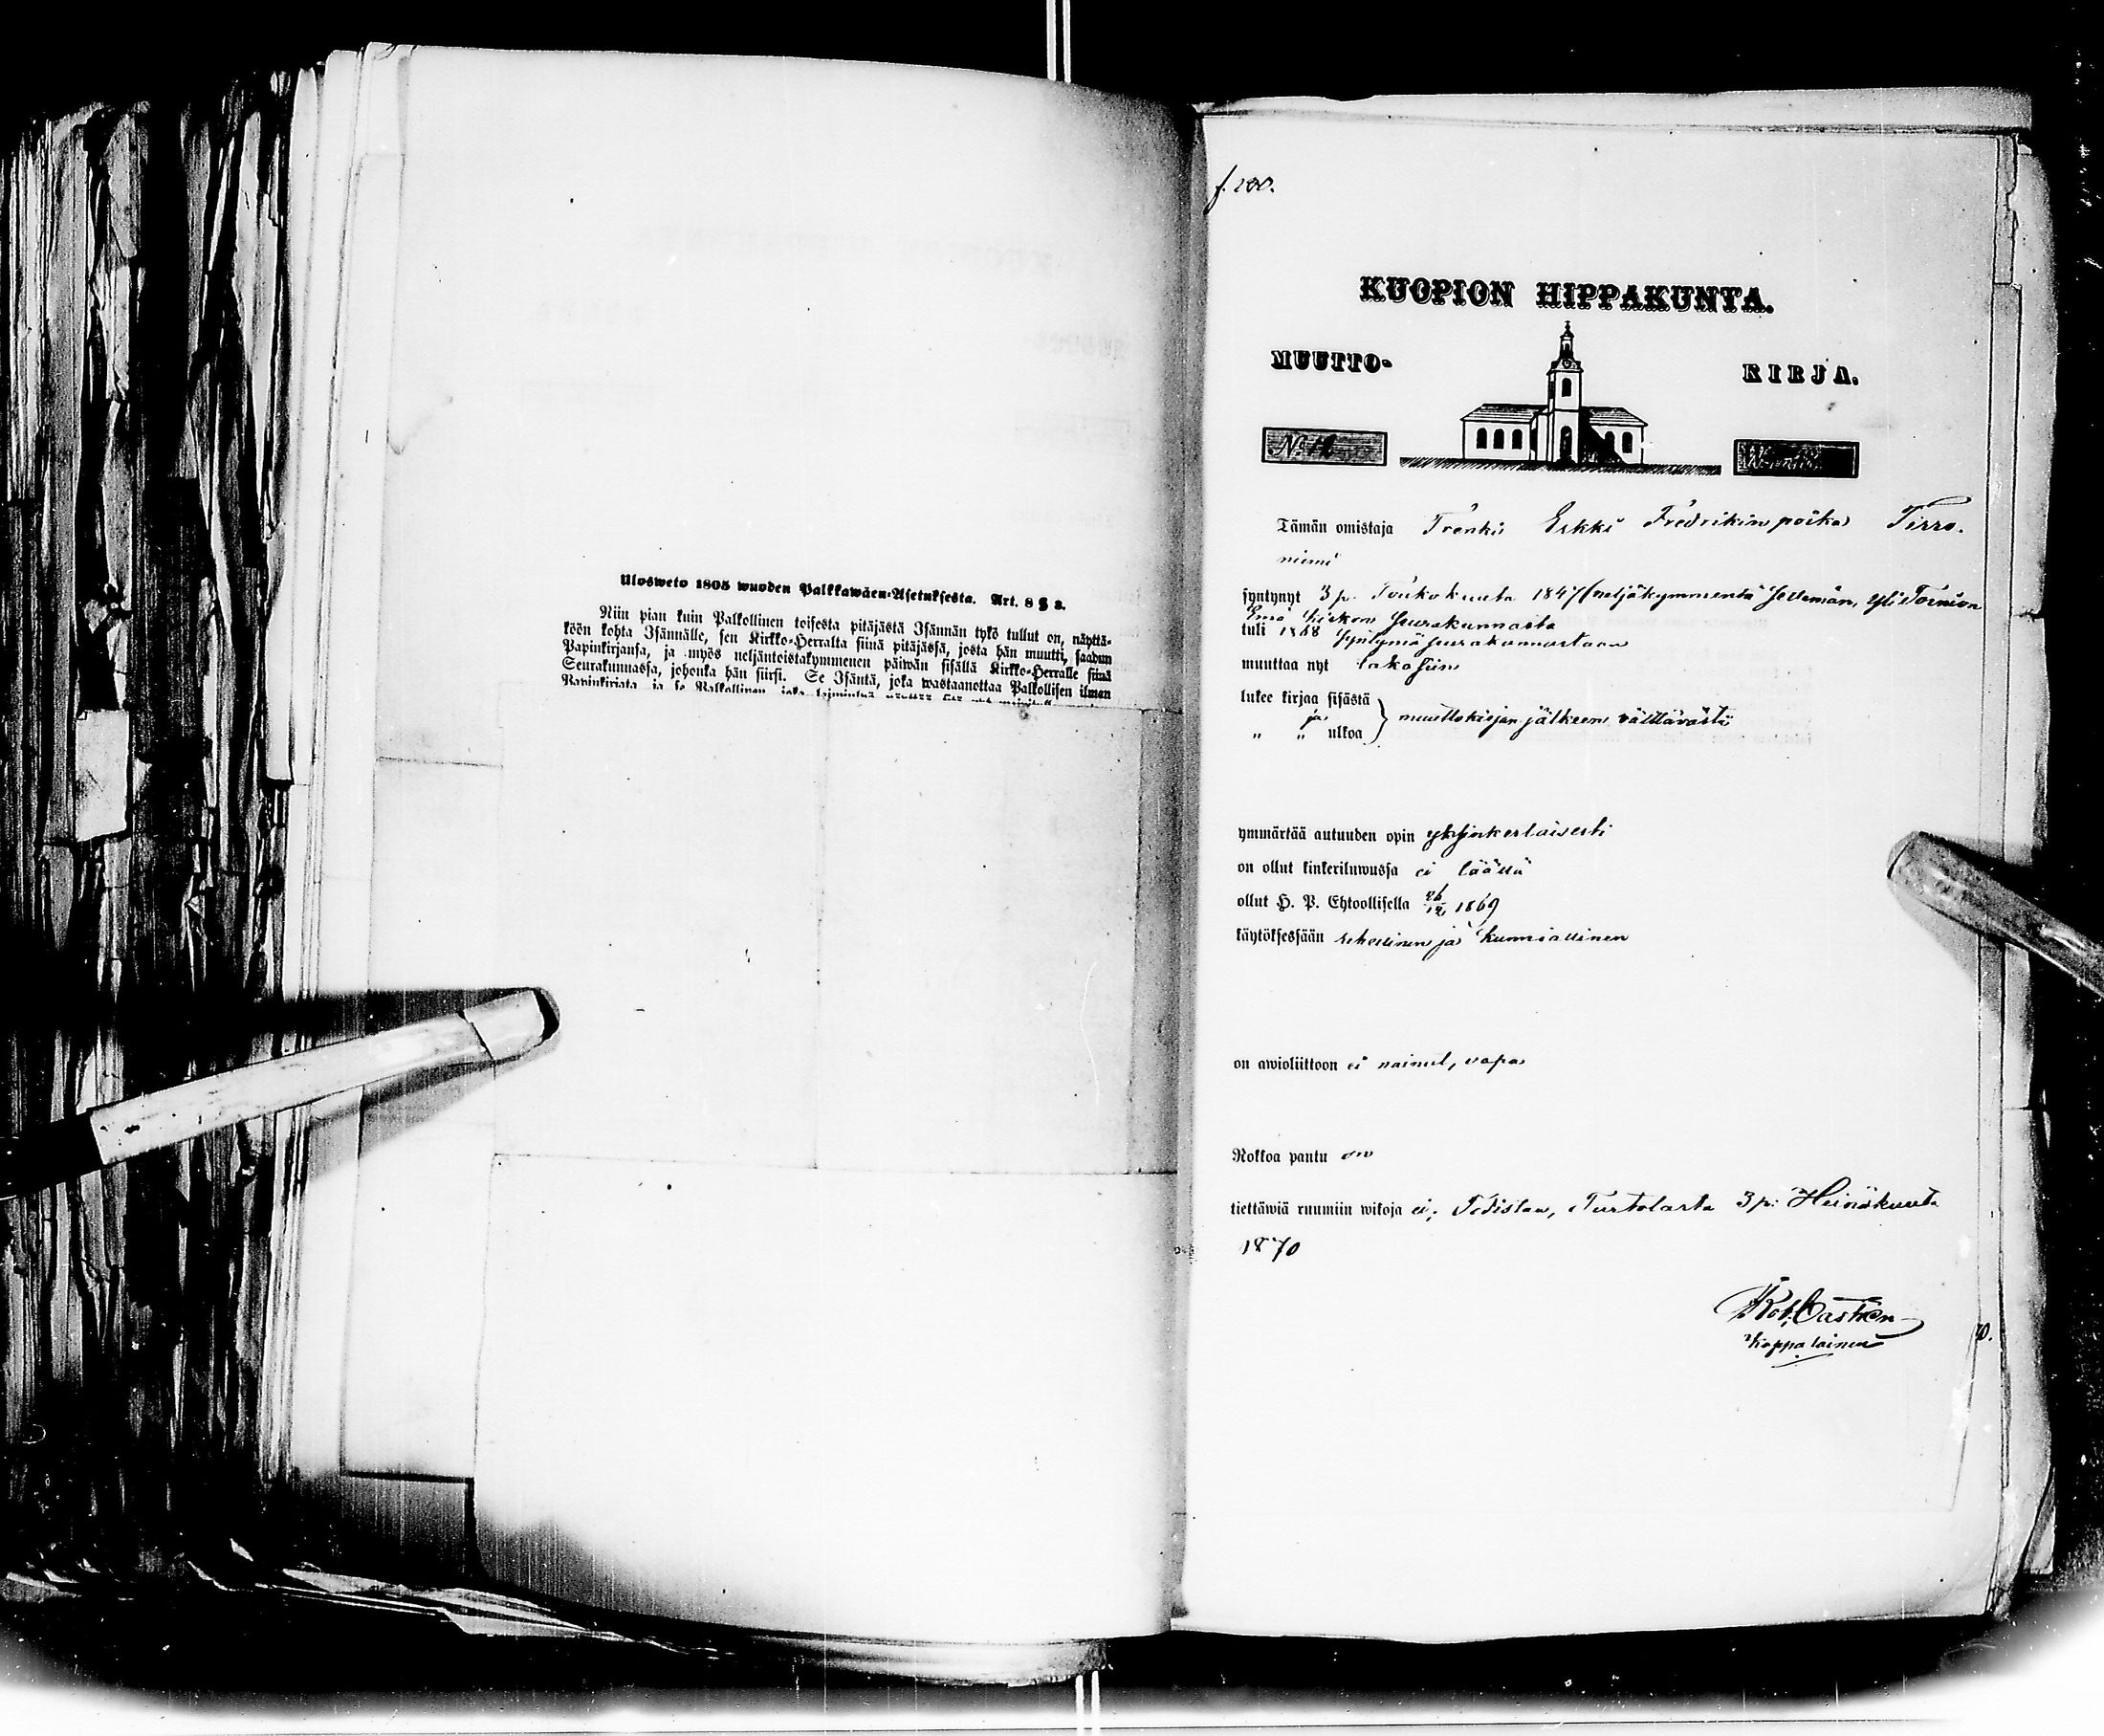 Ulosweto 1805 wuoden Palkkawäen-Asetuksesta. Art. 8 § 3.
Niin pian kuin Palkollinen toisesta pitäjästä Isännän tykö tullut on, näyttä-
köön kohta Isännälle, sen Kirkko-Herralta siinä pitäjässä, josta hän muutti, saadun
Papinkirjansa, ja myös neljäntoistakymmenen päiwän sisällä Kirkko-Herralle siinä
Seurakunnassa, johonka hän siirsi. Se Isäntä, joka wastaanottaa Palkollisen ilman
Papinkirjata, ja se Palkollinen, joka
f. 200.
KUOPION HIPPAKUNTA.
MUUTTO-
KIRJA.
N:
Tämän omistaja Trenki Erkki Fredrikin poika Tirro-
niemi
syntynyt 3 p. Toukokuuta 1847 (neljäkymmentä seitsemän, Yli Tornion
Emä Kirkon Seurakunnasta
tuli 1868 Syntymäseurakunnastaan
muuttaa nyt takasiin
lukee kirjaa sisästä
ja
„ „ ulkoa } muuttokirjan jälkeen välttävästi
ymmärtää autuuden opin yksinkertaisesti
on ollut kinkeriluwussa ei täällä
ollut H. P. Ehtoollisella 26/12 1869
käytöksessään rehellinen ja kunniallinen
on awioliittoon ei nainut, vapa
Rokkoa pantu on
tiettäwiä ruumiin wikoja ei; Todistaa, Turtolasta 3 p: Heinäkuuta
1870
Rob. Castrén
Kappalainen